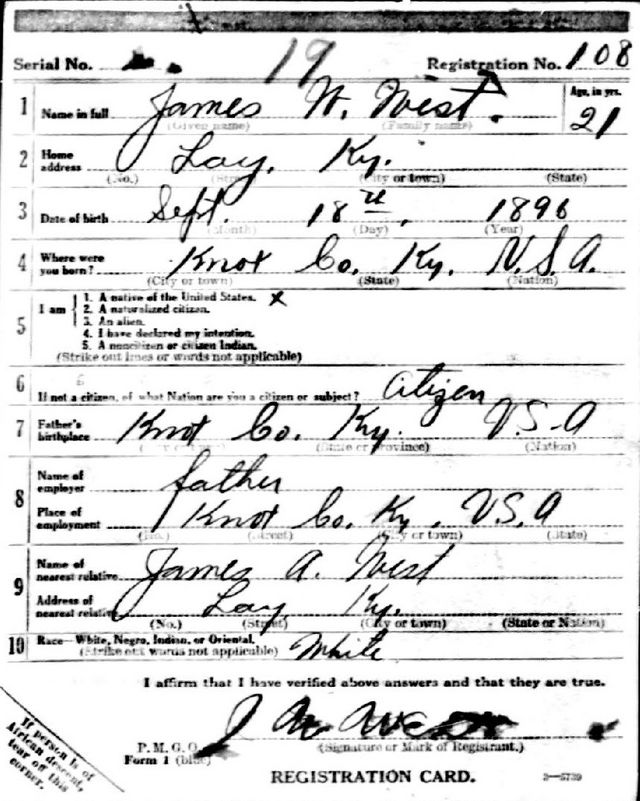 Serial No. 19 Registration No. 108
1 Name in full James W. West. Age, in yrs. 21
(Given name) (Family name)
2 Home address Lay, Ky.
(No.) (Street) (City or town) (State)
3 Date of birth Sept. 18 1896
(Month) (Day) (Year)
4 Where were you born? Knot Co. Ky. U.S.A.
(City or town) (State) (Nation)
5 I am
1. A native of the United States. x
2. A naturalized citizen.
3. An alien.
4. I have declared my intention.
5. A noncitizen or citizen Indian.
(Strike out lines or words not applicable)
6 If not a citizen, of what Nation are you a citizen or subject? Citizen
7 Father's birthplace Knot Co. Ky. U.S.A
(State or province) (Nation)
8 Name of employer father
Place of employment Knot Co. Ky. U.S.A
(No.) (Street) (City or town) (State)
9 Name of nearest relative James A. West
Address of nearest relative Lay Ky.
(No.) (Street) (City or town) (State or Nation)
10 Race—White, Negro, Indian, or Oriental. White
(Strike out words not applicable)
I affirm that I have verified above answers and that they are true.
J W West
P. M. G. O. (Signature or Mark of Registrant.)
Form 1 (blue)
REGISTRATION CARD. 3—5739
If person is of
African descent,
tear off this
corner.